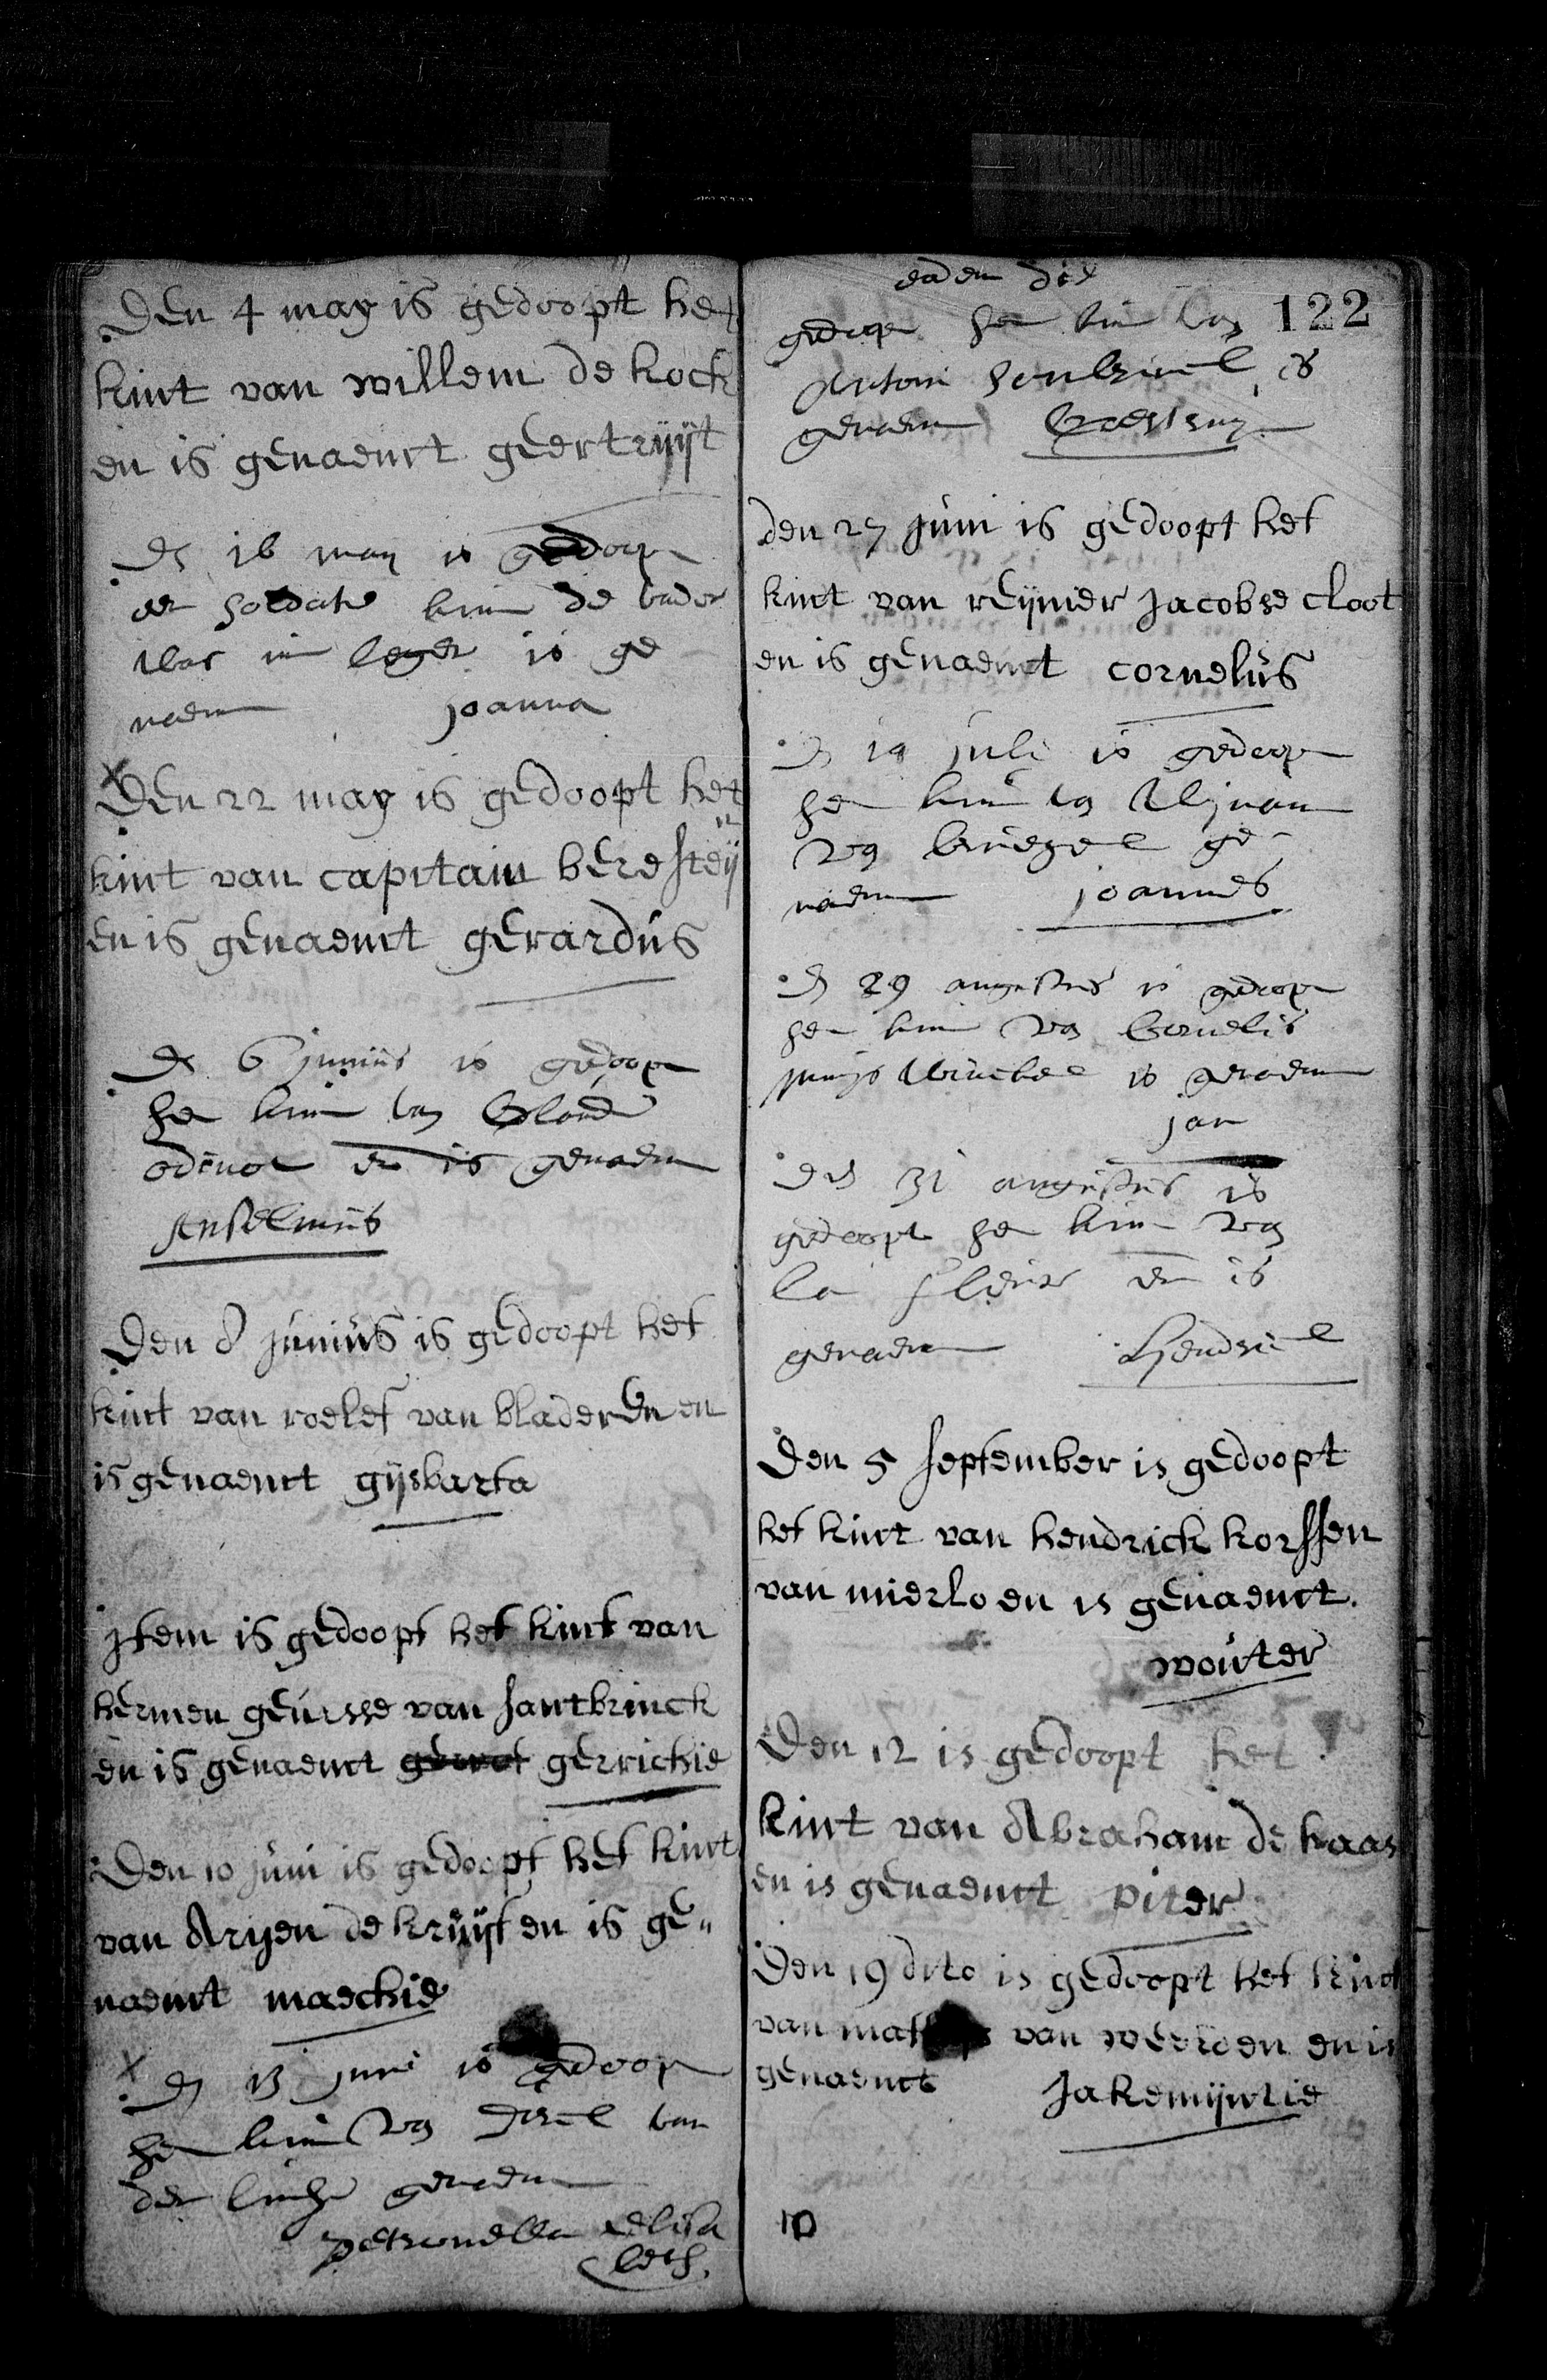 Den 4 may is gedoopt het
kint van willem de kock
en is genaemt geertrÿÿt
den 16 may is gedoopt
een soldate kint de vader
was in leger is ge
naemt joanna
Den 22 may is gedoopt het
kint van capitain beresteÿn
en is genaemt gerardús
den 6 junius is gedoopt
het kint van
en is genaemt
Anselmús
Den 8 júniús is gedoopt het
kint van roelef van bladeren en
is genaemt gijsbarta
Item is gedoopt het kint van
hermen geúrsse van santbrinck
en is genaemt gerrichie
Den 10 júni is gedoopt het kint
van Arijen de krúijf en is ge„
naemt maechie
den 13 juni is gedoopt
het kint van van
der genaemt
petronella elisa
beth.
eadem die
122
gedoopt het kint van
Antoni is
genaemt
den 27 júni is gedoopt het
kint van reijnier Jacobse cloot
en is genaemt cornelús
den 19 juli is gedoopt
het kint van Wijnant
van ge
naemt joannes
den 29 augustus is gedoopt
het kint van Cornelis
is genaemt
jan
den 31 augustus is
gedoopt het kint van
la fleur en is
genaemt Hendrick
Den 5 september is gedoopt
het kint van hendrick korssen
van mierlo en is genaemt.
wouter
Den 12 is gedoopt het
kint van Abraham de haas
en is genaemt piter
Den 19 dito is gedoopt het kint
van van weerden en is
genaemt Jakemijntie